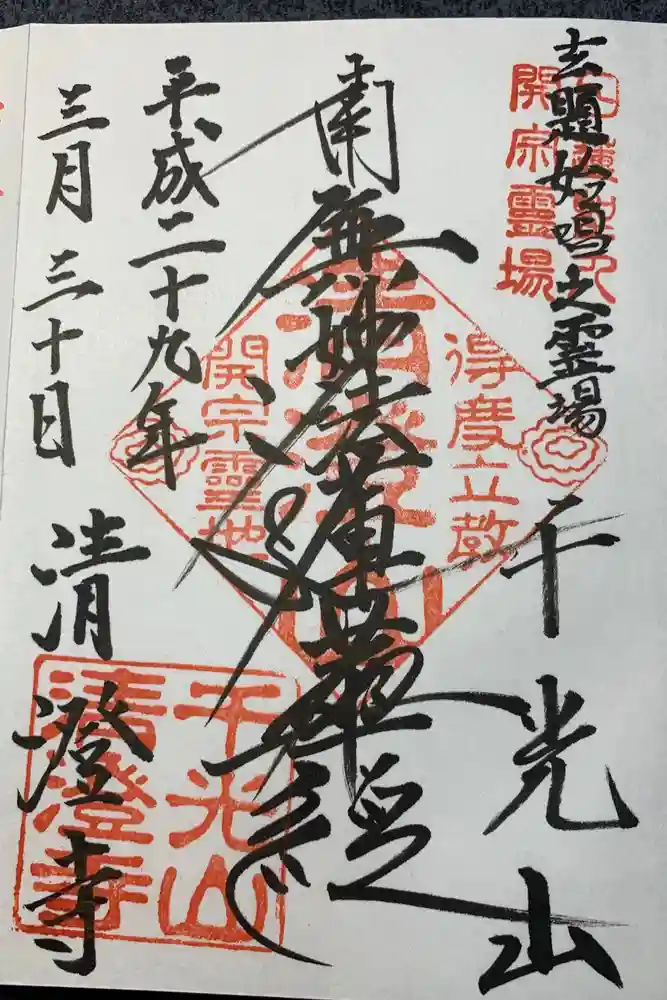 玄題始鳴之霊場
千光山
南無妙法蓮華経
平成二十九年
三月三十日
清澄寺
開宗靈場
得度立教
開宗靈地
千光山
清澄寺